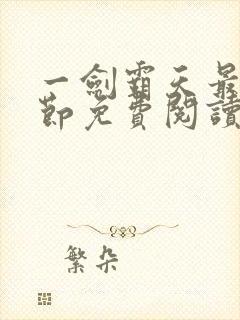 一劍霸天最
節免費閱讀
繁朵